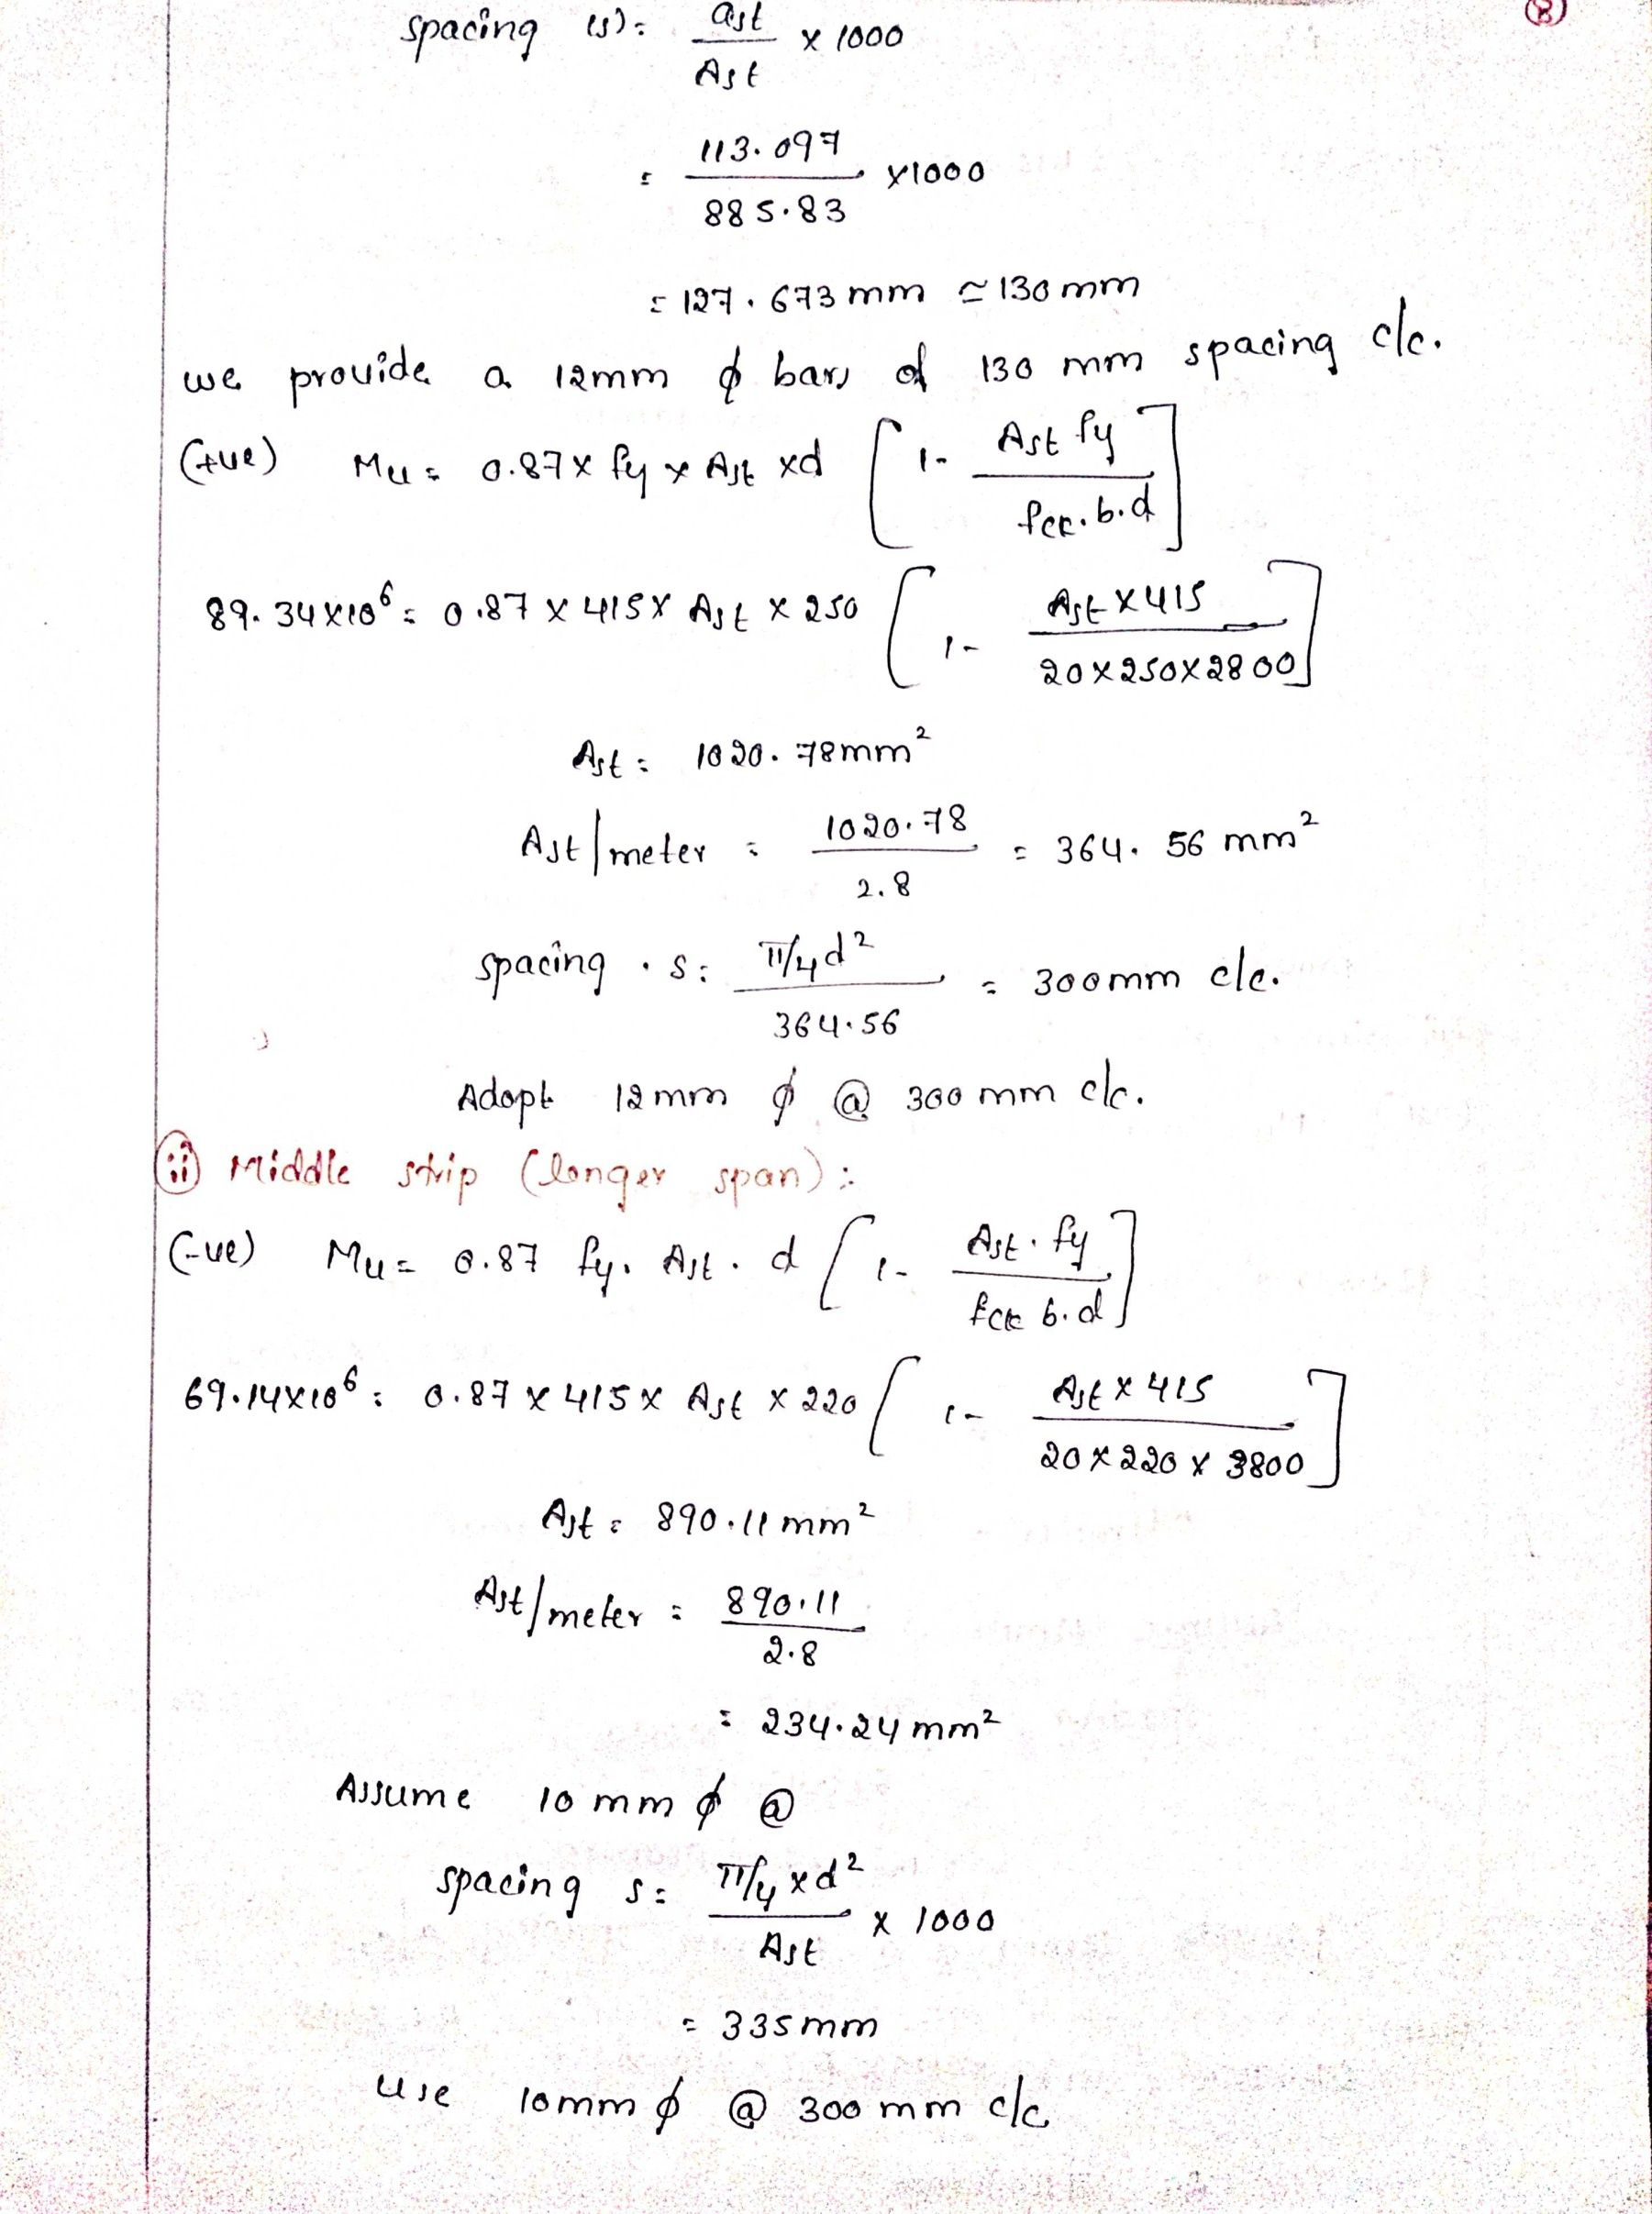 (8)
spacing (s) = ast / Ast × 1000
= 113.097 / 885.83 × 1000
= 127.673 mm ≃ 130 mm
we provide a 12mm ϕ bars of 130 mm spacing c/c.
(+ve) Mu = 0.87 × fy × Ast × d [ 1 - Ast fy / fck.b.d ]
89.34×10⁶ = 0.87 × 415 × Ast × 250 [ 1 - Ast × 415 / 20×250×2800 ]
Ast = 1020.78mm²
Ast/meter = 1020.78 / 2.8 = 364.56 mm²
spacing . s = π/4 d² / 364.56 = 300mm c/c.
Adopt 12mm ϕ @ 300 mm c/c.
(ii) Middle strip (longer span) :
(-ve) Mu = 0.87 fy. Ast . d [ 1 - Ast . fy / fck b.d ]
69.14×10⁶ = 0.87 × 415 × Ast × 220 [ 1 - Ast × 415 / 20 × 220 × 3800 ]
Ast = 890.11 mm²
Ast/meter = 890.11 / 2.8
= 234.24 mm²
Assume 10 mm ϕ @
spacing s = π/4 × d² / Ast × 1000
= 335mm
Use 10mm ϕ @ 300 mm c/c